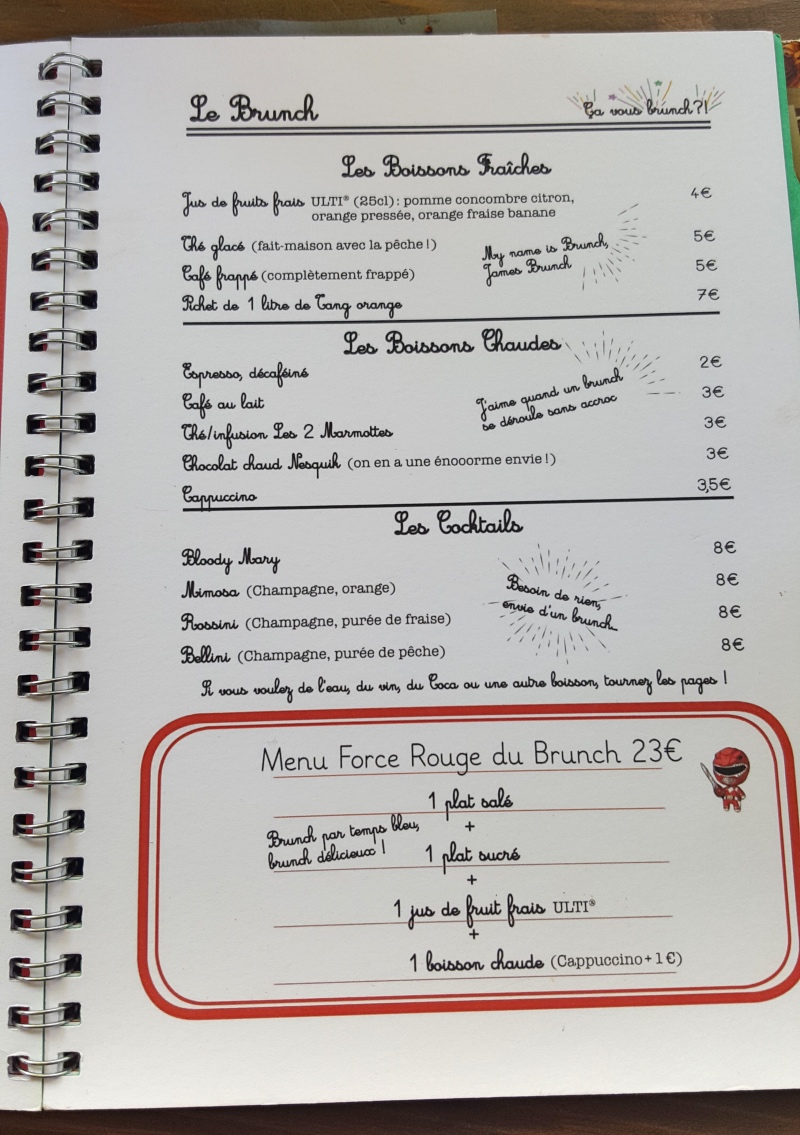 Le Brunch
Ça vous brunch?!
Les Boissons Fraîches
Jus de fruits frais ULTI® (25cl) : pomme concombre citron, 4€
orange pressée, orange fraise banane
Thé glacé (fait-maison avec la pêche !) 5€
My name is Brunch,
James Brunch
Café frappé (complètement frappé) 5€
Pichet de 1 litre de Tang orange 7€
Les Boissons Chaudes
Espresso, décaféiné 2€
Café au lait 3€
J'aime quand un brunch
se déroule sans accroc
Thé/infusion Les 2 Marmottes 3€
Chocolat chaud Nesquik (on en a une énooorme envie !) 3€
Cappuccino 3,5€
Les Cocktails
Bloody Mary 8€
Mimosa (Champagne, orange) 8€
Besoin de rien,
envie d'un brunch...
Rossini (Champagne, purée de fraise) 8€
Bellini (Champagne, purée de pêche) 8€
Si vous voulez de l'eau, du vin, du Coca ou une autre boisson, tournez les pages !
Menu Force Rouge du Brunch 23€
1 plat salé
+
Brunch par temps bleu,
brunch délicieux !
1 plat sucré
+
1 jus de fruit frais ULTI®
+
1 boisson chaude (Cappuccino + 1 €)